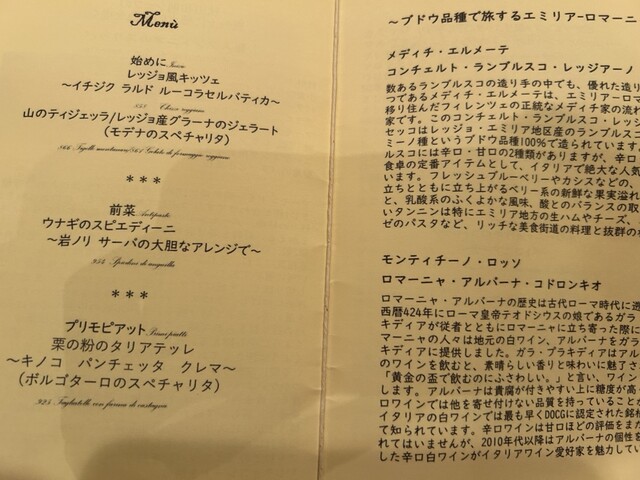 Menù
始めに
レッジョ風キッツェ
～イチジク ラルド ルーコラセルバティカ～
山のティジェッラ/レッジョ産グラーナのジェラート
(モデナのスペチャリタ)
***
前菜 Antipasto
ウナギのスピエディーニ
～岩ノリ サーバの大胆なアレンジで～
954 Spiedini di anguilla
***
プリモピアット Primo piatto
栗の粉のタリアテッレ
～キノコ パンチェッタ クレマ～
(ボルゴターロのスペチャリタ)
924 Tagliatelle con farina di castagne
～ブドウ品種で旅するエミリアｰロマーニ
メディチ・エルメーテ
コンチェルト・ランブルスコ・レッジアーノ
数あるランブルスコの造り手の中でも、優れた造り
つであるメディチ・エルメーテは、エミリアｰロマ
移り住んだフィレンツェの正統なメディチ家の流れ
家です。このコンチェルト・ランブルスコ・レッジ
セッコはレッジョ・エミリア地区産のランブルス
ミーノ種というブドウ品種100%で造られています。
ルスコには辛口・甘口の2種類がありますが、辛口
食卓の定番アイテムとして、イタリアで絶大な人気
います。フレッシュブルーベリーやカシスなどの、
立ちとともに立ち上がるベリー系の新鮮な果実溢れ
と、乳酸系のふくよかな風味、酸とのバランスの取
いタンニンは特にエミリア地方の生ハムやチーズ、
ゼのパスタなど、リッチな美食街道の料理と抜群の
モンティチーノ・ロッソ
ロマーニャ・アルバーナ・コドロンキオ
ロマーニャ・アルバーナの歴史は古代ローマ時代に遡
西暦424年にローマ皇帝テオドシウスの娘であるガラ
キディアが従者とともにロマーニャに立ち寄った際に
マーニャの人々は地元の白ワイン、アルバーナをガラ
キディアに提供しました。ガラ・プラキディアはアル
のワインを飲むと、素晴らしい香りと味わいに魅了さ
「黄金の盃で飲むのにふさわしい。」と言い、ワイン
します。アルバーナは貴腐が付きやすい上に糖度が高
ロワインでは他を寄せ付けない品質を持っていることか
イタリアの白ワインでは最も早くDOCGに認定された銘柄
て知られています。辛口ワインは甘口ほどの評価をまだ
れてはいませんが、2010年代以降はアルバーナの個性を
した辛口白ワインがイタリアワイン愛好家を魅力してい